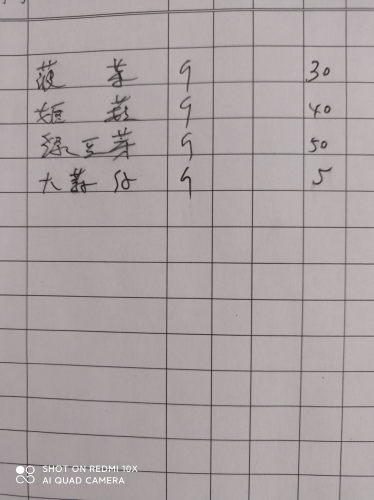 菠菜 9 30
短菇 9 40
绿豆芽 9 50
大蒜仔 9 5
SHOT ON REDMI 10X
AI QUAD CAMERA